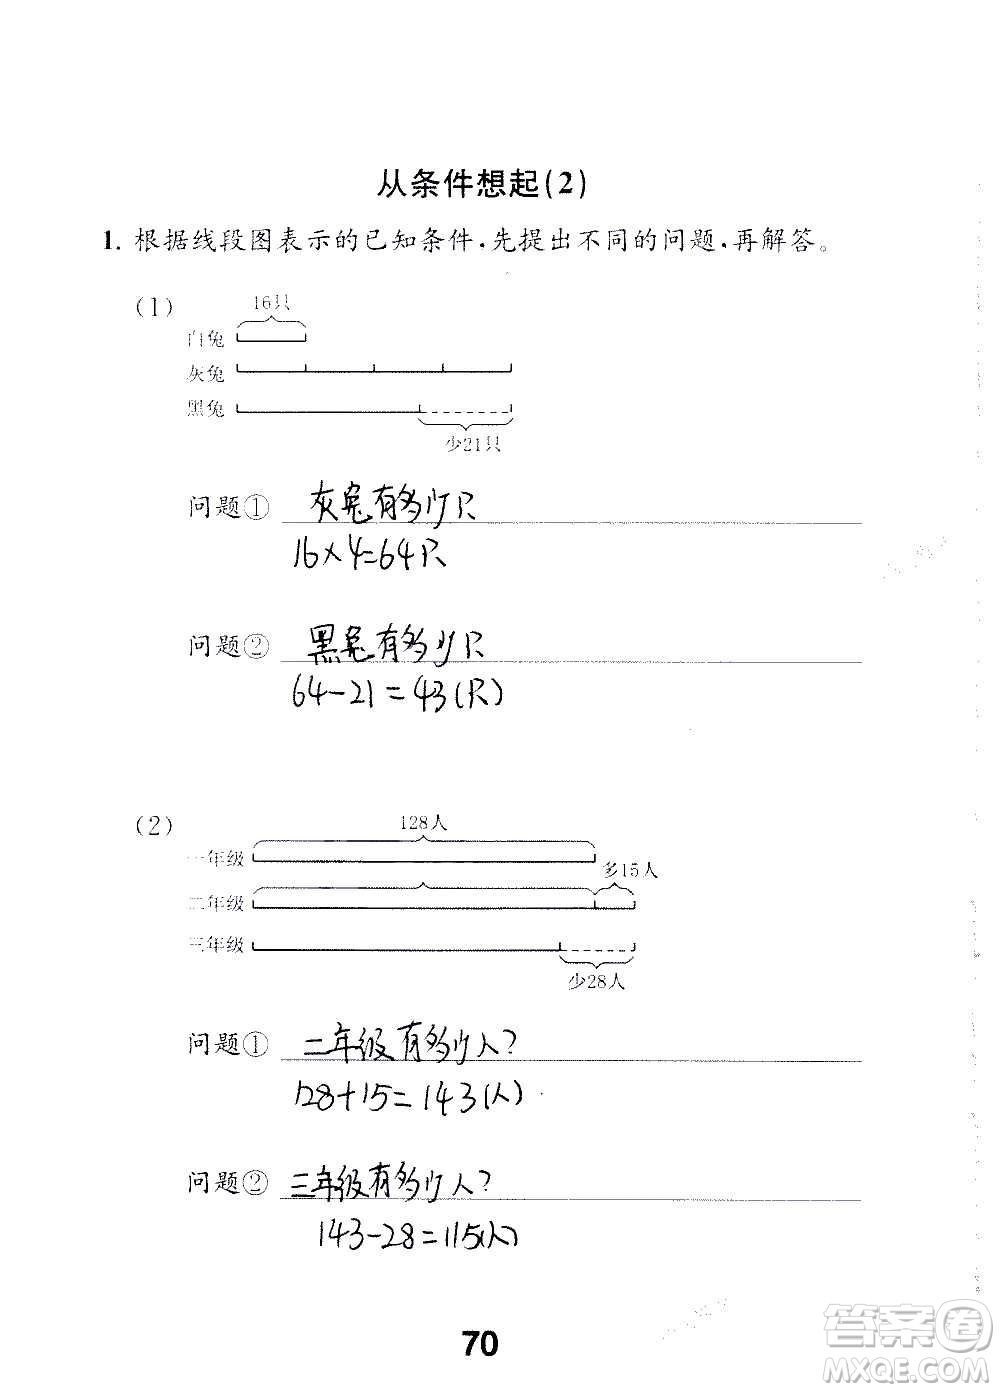 从条件想起(2)
1. 根据线段图表示的已知条件,先提出不同的问题,再解答。
(1)
16只
白兔
灰兔
黑兔
少21只
问题① 灰兔有多少只
16×4=64只
问题② 黑兔有多少只
64-21=43(只)
(2)
128人
一年级
多15人
二年级
三年级
少28人
问题① 二年级有多少人?
128+15=143(人)
问题② 三年级有多少人?
143-28=115(人)
70
答案卷
MXQE.COM